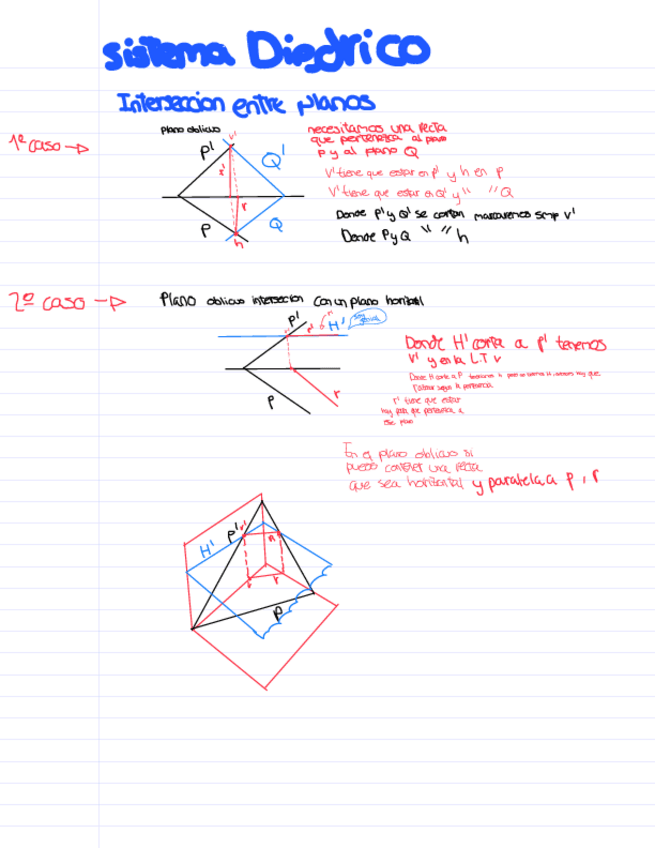 sistema Diedrico
Interseccion entre planos
1º caso →
plano oblicuo
necesitamos una recta
que pertenezca al plano
p y al plano Q
V' tiene que estar en p' y h en p
V' tiene que estar en Q' y " " Q
Donde p' y Q' se cortan marcaremos smp v'
Donde P y Q " " h
v'
P'
Q'
r'
r
P
Q
h
2º caso →
Plano oblicuo interseccion con un plano horizontal
P'
H'
P
r
Donde H' corta a p' tenemos
v' y en la L.T v
r' tiene que estar
En el plano oblicuo si
puedo contener una recta
que sea horizontal y paralela a p, r
H'
P'
r
P